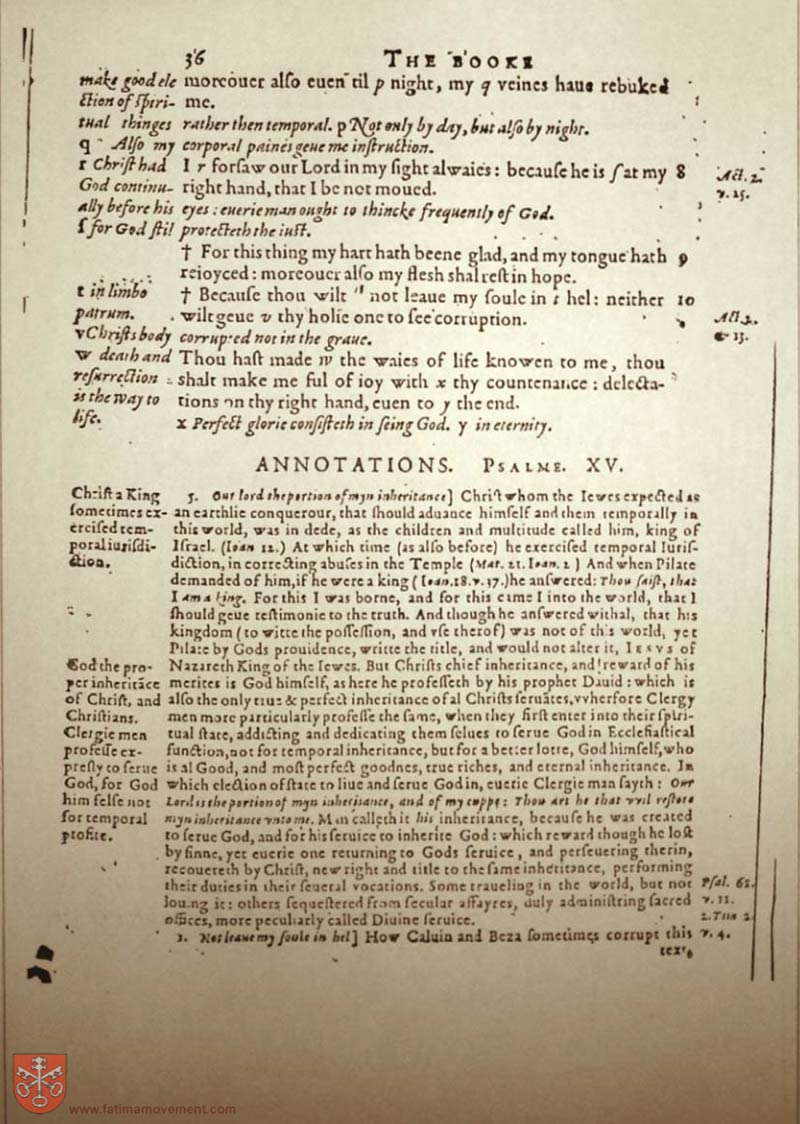 36 THE BOOKE
make good ele moreouer also euen til p night, my q veines haue rebuked
ction of spiri- me.
tual thinges rather then temporal. p Not only by day, but also by night.
q Also my corporal paines geue me instruction.
r Christ had I r forsaw our Lord in my sight alwaies: because he is ſ at my 8 Act. 2.
God continu- right hand, that I be not moued. v. 25.
ally before his eyes: euerie man ought to thincke frequently of God.
ſ for God stil protecteth the iust.
† For this thing my hart hath beene glad, and my tongue hath 9
reioyced: moreouer also my flesh shal rest in hope.
t in limbo † Because thou wilt " not leaue my soule in t hel: neither 10
patrum. wilt geue v thy holie one to see corruption.
v Christs body corrupted not in the graue.
w death and Thou hast made w the waies of life knowen to me, thou
resurrection shalt make me ful of ioy with x thy countenance: delecta-
is the way to tions on thy right hand, euen to y the end.
life. x Perfect glorie consisteth in seing God. y in eternity.
ANNOTATIONS. PSALME. XV.
Christ a King 5. Our lord the portion of myn inheritance] Christ whom the Iewes expected as
sometimes ex- an earthlie conquerour, that should aduance himself and them temporally in
ercised tem- this world, was in dede, as the children and multitude called him, king of
poral iurisdi- Israel. (Ioan 12.) At which time (as also before) he exercised temporal Iuris-
ction. diction, in correcting abuses in the Temple (Mat. 21. Ioan. 2) And when Pilate
demanded of him, if he were a king (Ioan. 18. v. 37.) he answered: Thou saist, that
I am a king. For this I was borne, and for this came I into the world, that I
should geue testimonie to the truth. And though he answered withal, that his
kingdom (to witte the possession, and vse therof) was not of this world, yet
Pilate by Gods prouidence, writte the title, and would not alter it, IESVS of
God the pro- Nazareth King of the Iewes. But Christs chief inheritance, and reward of his
per inheritāce merites is God himself, as here he professeth by his prophet Dauid: which is
of Christ, and also the only true & perfect inheritance of al Christs seruātes, vvherfore Clergy
Christians. men more particularly professe the same, when they first enter into their spiri-
Clergie men tual state, addicting and dedicating them selues to serue God in Ecclesiastical
professe ex- function, not for temporal inheritance, but for a better lotte, God himself, who
presly to serue is al Good, and most perfect goodnes, true riches, and eternal inheritance. In
God, for God which election of state to liue and serue God in, euerie Clergie man sayth: Our
him selfe not Lord is the portion of myn inheritance, and of my cuppe: Thou art he that vvil restore
for temporal myn inheritance vnto me. Man calleth it his inheritance, because he was created
profite. to serue God, and for his seruice to inherite God: which reward though he lost
by sinne, yet euerie one returning to Gods seruice, and perseuering therin,
recouereth by Christ, new right and title to the same inheritance, performing
their duties in their seueral vocations. Some traueling in the world, but not Psal. 61.
louing it: others sequestered from secular affayres, duly administring sacred v. 11.
offices, more peculiarly called Diuine seruice. 2. Tim 2.
Not leaue my soule in hel] How Caluin and Beza sometimes corrupt this v. 4.
text,
www.fatimamovement.com